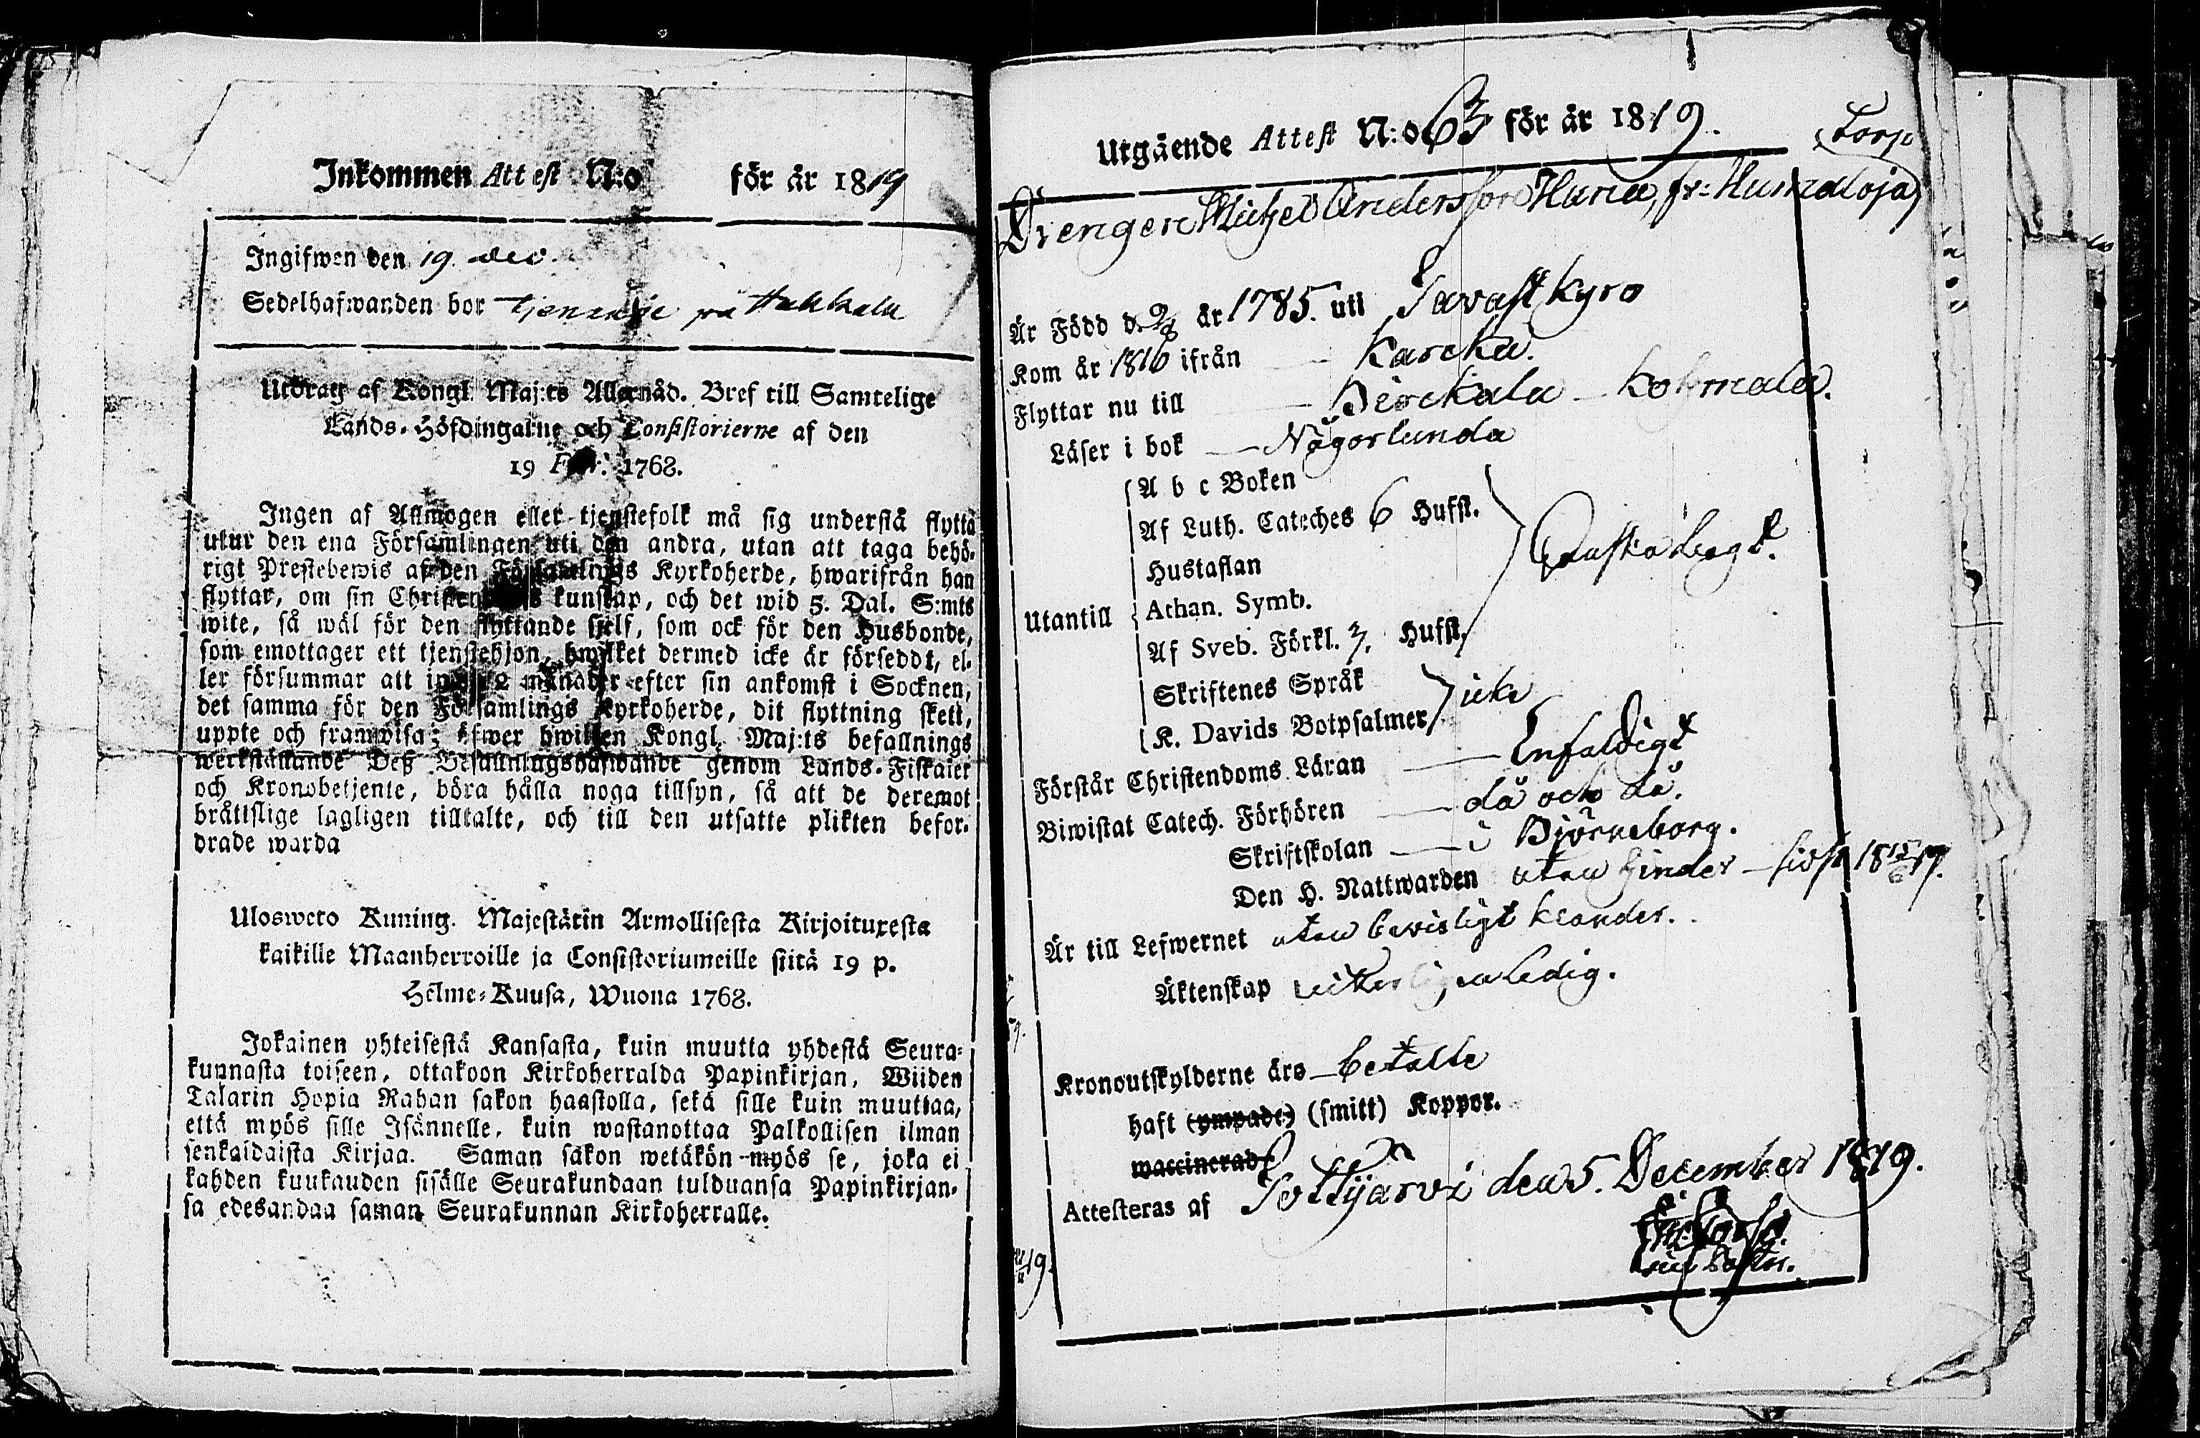 Inkommen Attest N:o för år 1819
Ingifwen den 19 dec.
Sedelhafwanden bor tjenande på Hakkala
Utdrag af Kongl. Maj:ts Allernåd. Bref till Samtelige
Lands-Höfdingarne och Consistorierne af den
19 Febr. 1768.
Ingen af Allmogen eller tjenstefolk må sig understå flytta
utur den ena Församlingen uti den andra, utan att taga behö-
rigt Prestebewis af den Församlings Kyrkoherde, hwarifrån han
flyttar, om sin Christendoms kunskap, och det wid 5. Dal. S:mts
wite, så wäl för den flyttande sjelf, som ock för den Husbonde,
som emottager ett tjenstehjon, hwilket dermed icke är försedt, el-
ler försummar att inom 2 månader efter sin ankomst i Socknen,
det samma för den Församlings Kyrkoherde, dit flyttning skett,
uppte och framwisa; öfwer hwilken Kongl. Maj:ts befallnings
werkställande Deß Befallningshafwande genom Lands-Fiskaler
och Kronobetjente, böra hålla noga tillsyn, så att de deremot
bråtislige lagligen tilltalte, och till den utsatte plikten befor-
drade warda
Ulosweto Kuning. Majestätin Armollisesta Kirjoituxesta
kaikille Maanherroille ja Consistoriumeille siitä 19 p.
Helme-Kuusa, Wuona 1768.
Jokainen yhteisestä Kansasta, kuin muutta yhdestä Seura-
kunnasta toiseen, ottakoon Kirkoherralda Papinkirjan, Wiiden
Talarin Hopia Rahan sakon haastolla, sekä sille kuin muuttaa,
että myös sille Isännelle, kuin wastanottaa Palkollisen ilman
senkaidaista Kirjaa. Saman sakon wetäkön myös se, joka ei
kahden kuukauden sisälle Seurakundaan tulduansa Papinkirjan-
sa edesandaa saman Seurakunnan Kirkoherralle.
Utgående Attest N:o 63 för år 1819.
Torp
Drengen Michel Andersson Hana, fr: Humaloja
Är Född d. år 1785. uti Tavastkyro
Kom år 1816 ifrån Karcku.
Flyttar nu till Birckala Kolmala.
Läser i bok Någorlunda
A b c Boken
Af Luth. Cateches 6 Hufst.
Hustaflan
Ganska Svagt.
Athan. Symb.
Utantill
Af Sveb. Förkl. 3. Hufst.
Skriftenes Språk
K. Davids Botpsalmer icke
Förstår Christendoms Läran Enfaldigt
Biwistat Catech. Förhören då och då.
Skriftskolan i Björneborg.
Den H. Nattwarden utan hinder sidst 18 19.
Är till Lefwernet utan bevisligt klander.
Äktenskap ledig.
Kronoutskylderne äro betalte
haft (ympade) (smitt) Koppor.
waccinerad
Attesteras af Tottijärvi den 5. December 1819.